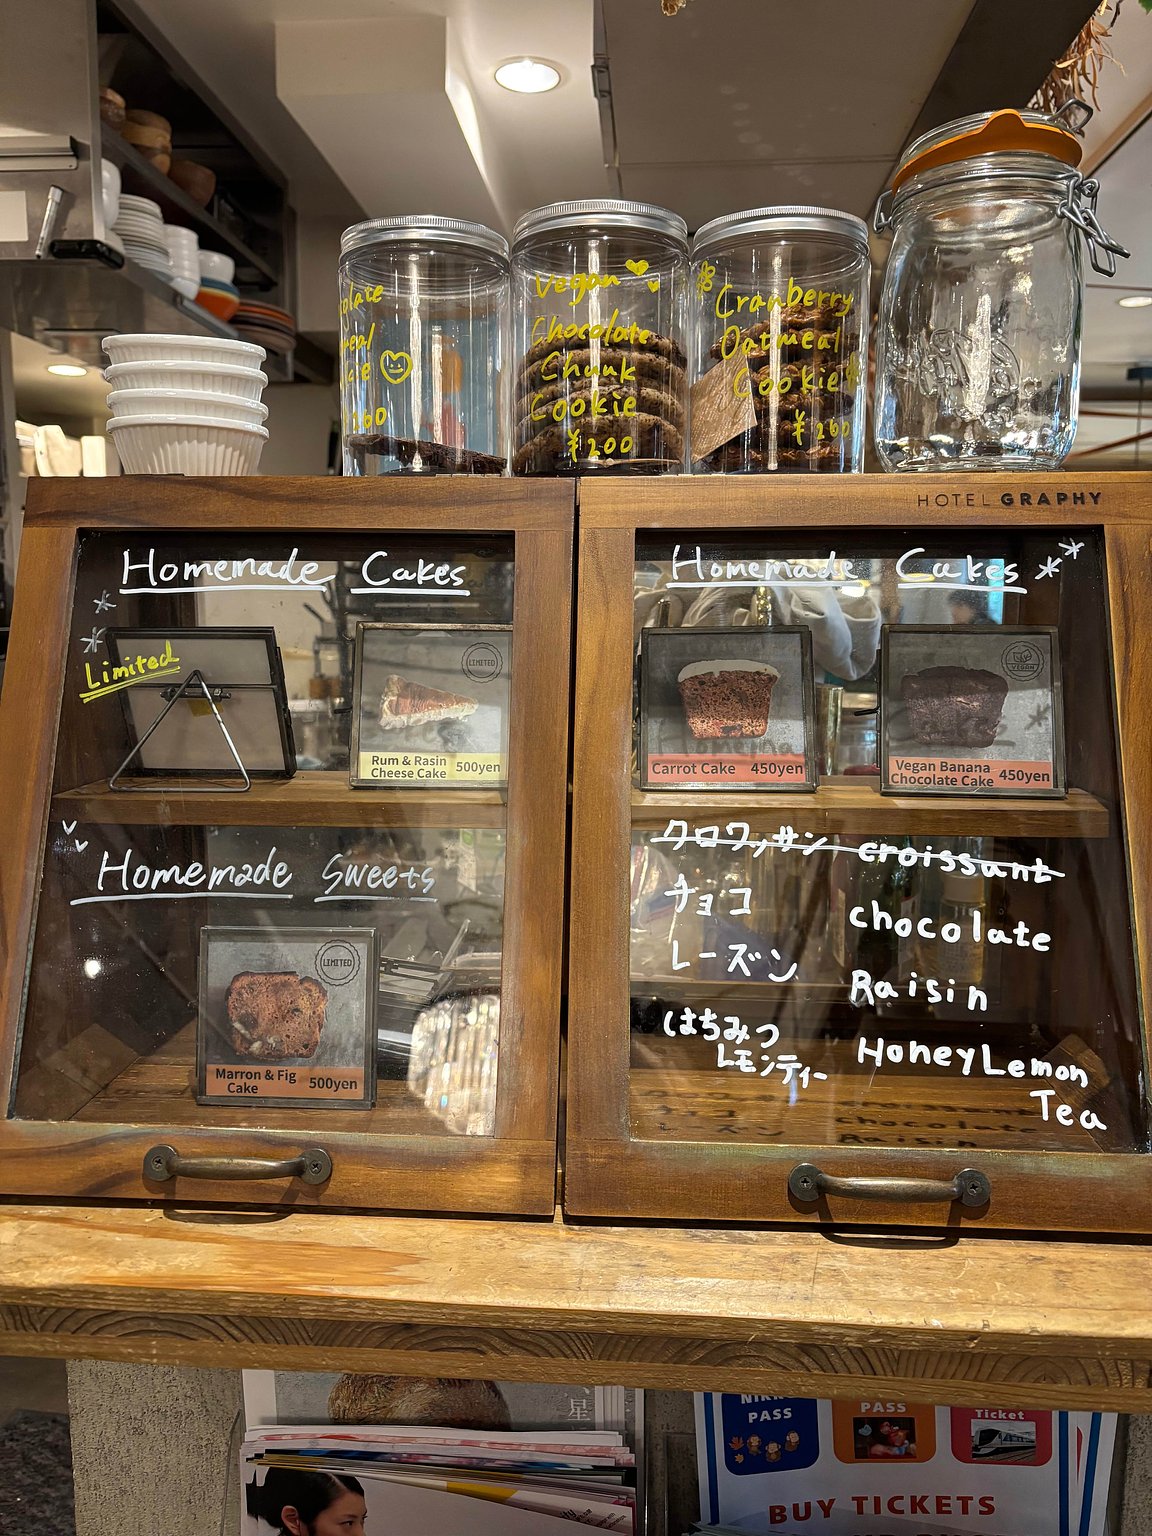 Vegan
Chocolate
Chunk
Cookie
¥200
Cranberry
Oatmeal
Cookie
¥260
HOTEL GRAPHY
Homemade Cakes
Limited
LIMITED
Rum & Rasin
Cheese Cake 500yen
Homemade Sweets
LIMITED
Marron & Fig
Cake 500yen
Homemade Cakes
Carrot Cake 450yen
VEGAN
Vegan Banana
Chocolate Cake 450yen
クロワッサン croissant
チョコ chocolate
レーズン Raisin
はちみつ
レモンティー
HoneyLemon
Tea
星
PASS
PASS
Ticket
BUY TICKETS